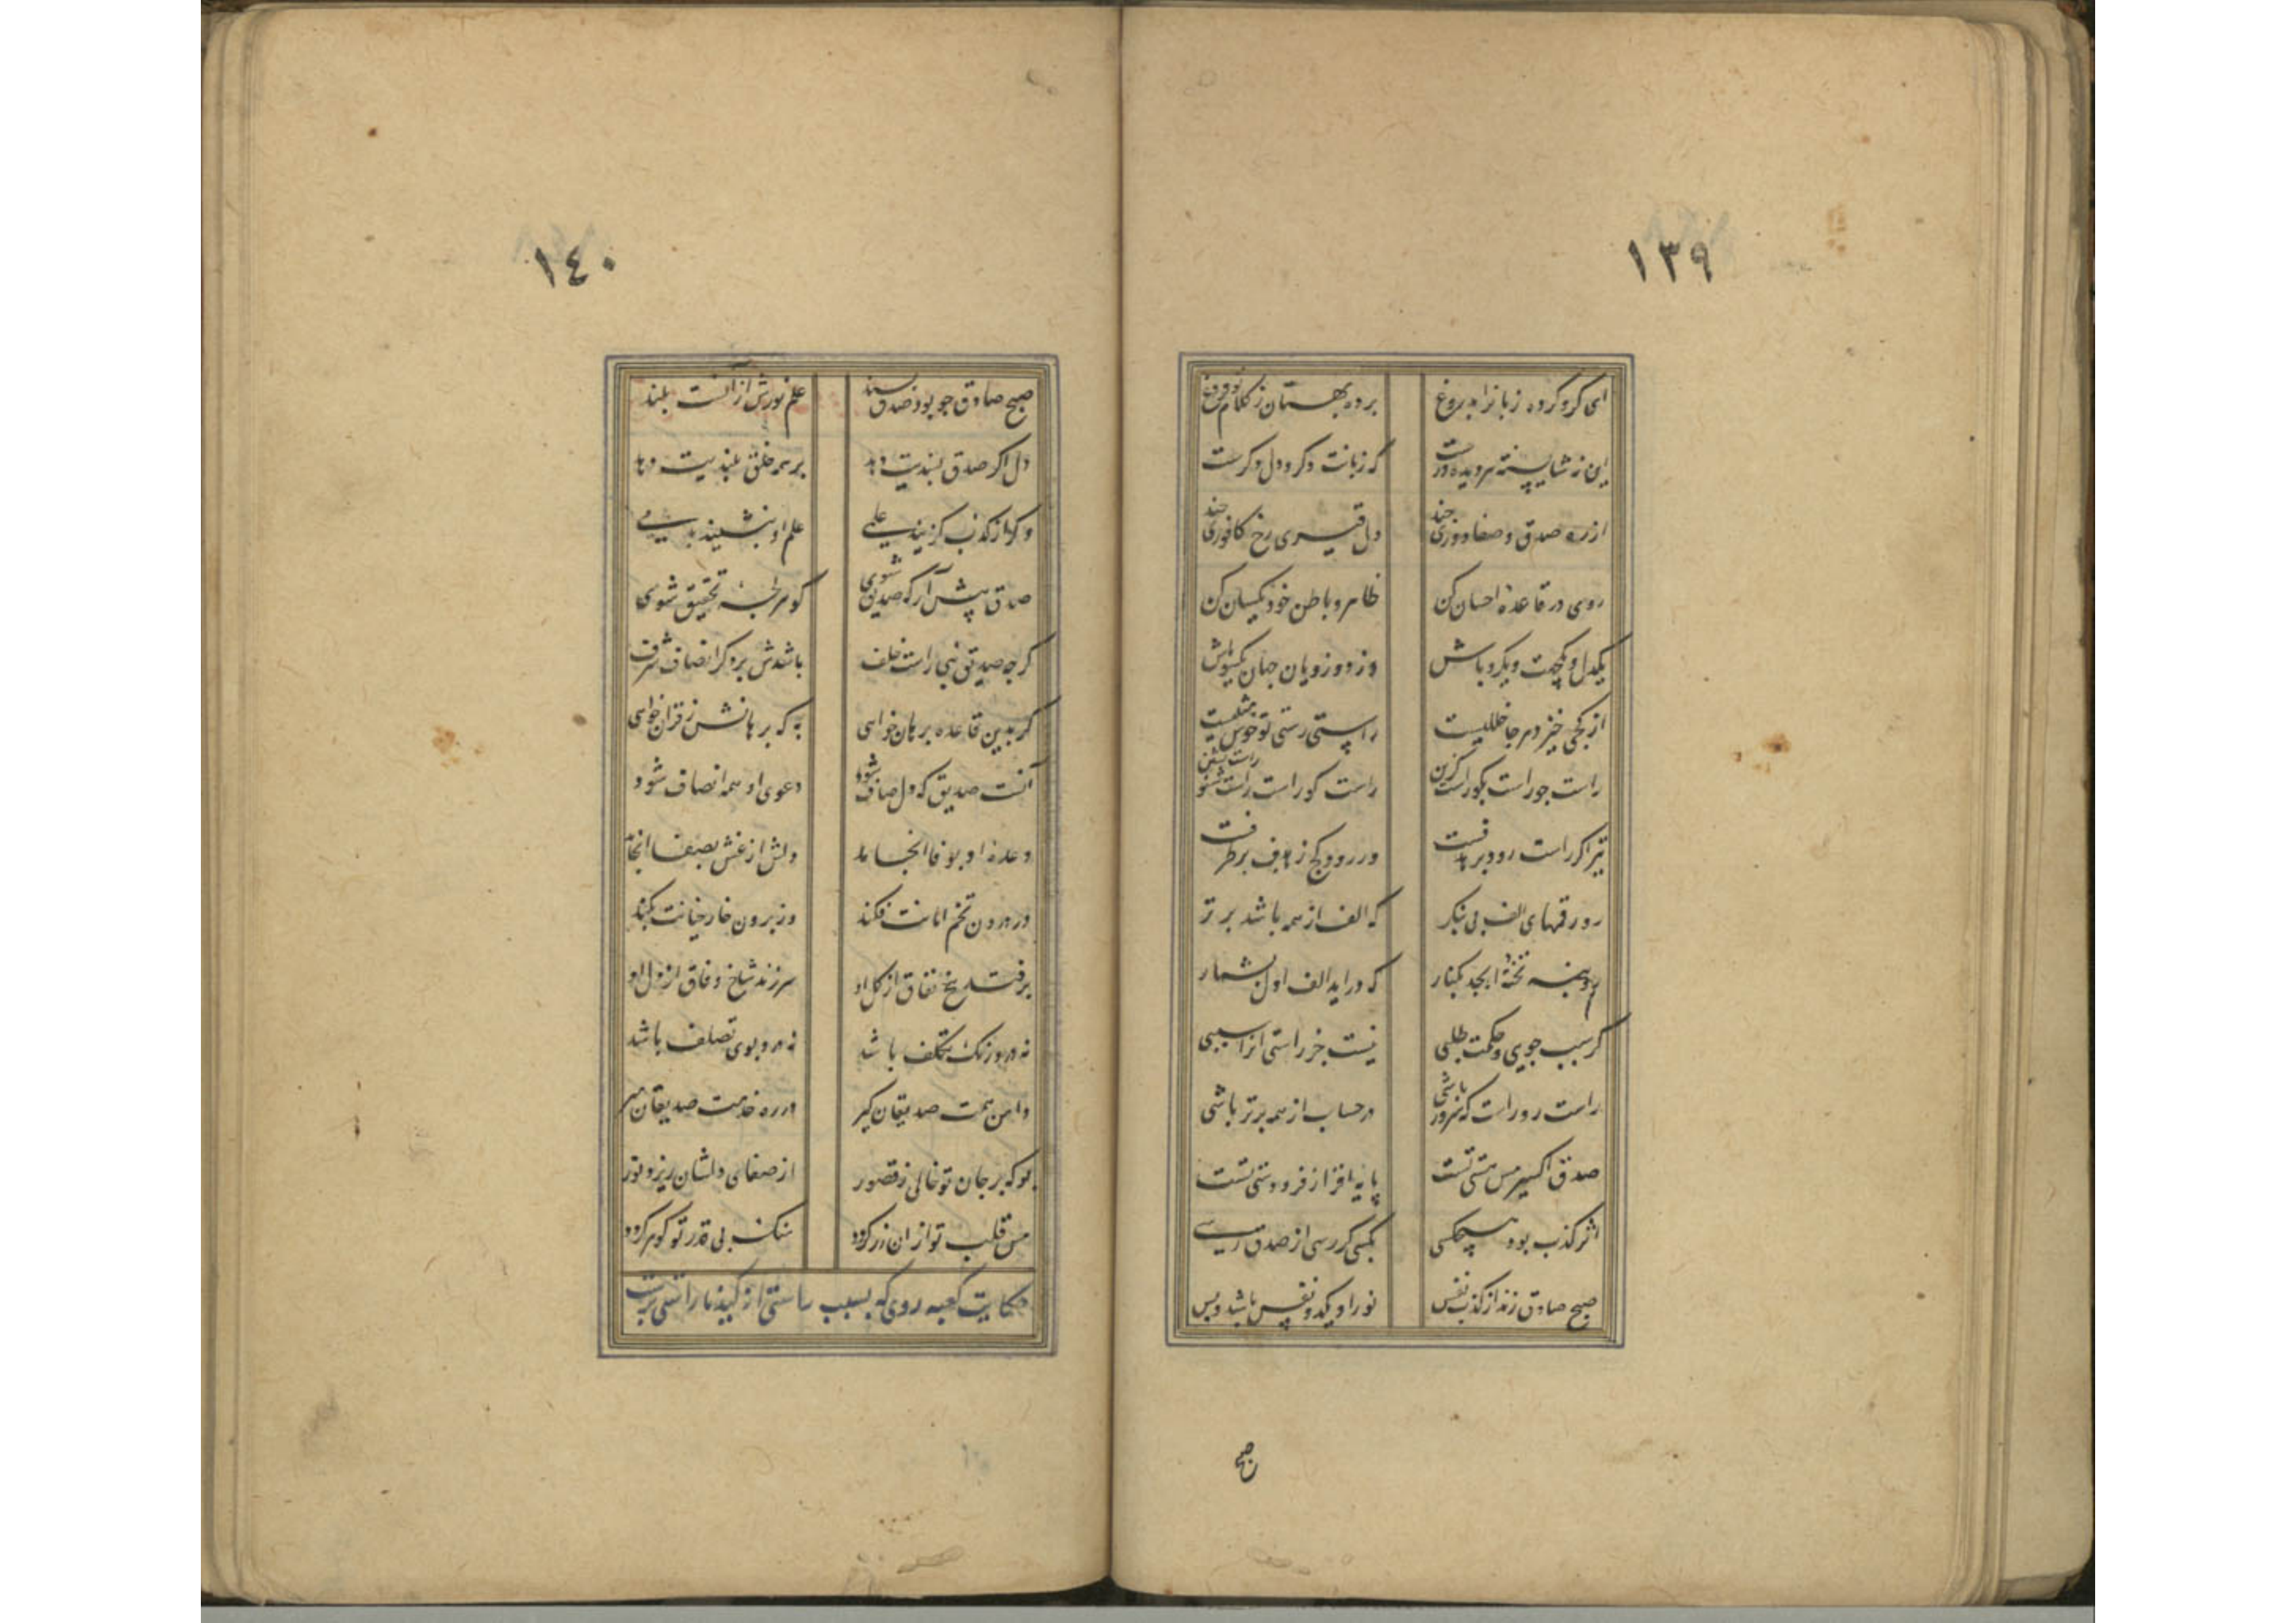 ١٣٩
ای کرو کرده زبانرا بدروغ
برده بهتان ز کلام تو فروغ
این نه شایسته هر دیده ورست
که زبانت دکر و دل دکرست
از ره صدق و صفا دوری چند
دل قیری رخ کافوری چند
روی در قاعده احسان کن
ظاهر و باطن خود یکسان کن
یکدل و یکجهت و یکرو باش
وز دورویان جهان یکسو باش
از کجی خیزد هر جا خللیست
راستی رستی تو خوش مثلیست
راست جو راست نکر راست کزین
راست کو راست شنو راست نشین
تیر اکر راست رود بر هدفست
ور رود کج ز هدف بر طرفست
رو رقمهای الف بی بنکر
که الف از همه باشد برتر
هم بنه تختهٔ ابجد بکنار
که دراید الف اول بشمار
کر سبب جویی و حکمت طلبی
نیست جز راستی انرا سببی
راست رو راست که سرور باشی
در حساب از همه برتر باشی
صدق اکسیر مس هستی تست
پایه افراز فرودستی تست
اثر کذب بود هیچکسی
بکسی کر رسی از صدق رسی
صبح صادق زند از کذب نفس
نور او یکدو نفس باشد و بس
صبح
١٤٠
صبح صادق چو بود صدق پسند
علم نورش از آنست بلند
دل اکر صدق پسندیت دهد
بر همه خلق بلندیت دهد
وکر از کذب کزیند علمی
علم او بنشیند بدمی
صدق پیش آر که صدیق شوی
کوهر لجهٔ تحقیق شوی
کرچه صدیق نبی راست خلف
باشدش بر دکر انصاف شرف
کر بدین قاعده برهان خواهی
به که برهانش ز قران خواهی
آنست صدیق که دل صاف شود
دعوی او همه انصاف شود
وعدهٔ او بوفا انجامد
دلش از غش بصفا انجامد
در درون تخم امانت فکند
وز برون خار خیانت بکند
برفتد بیخ نفاق از کل او
سر زند شاخ وفاق از دل او
نه درو رنک تکلف باشد
نه درو بوی تصلف باشد
دامن همت صدیقان کیر
در ره خدمت صدیقان میر
بو که بر جان تو خالی ز قصور
از صفای دلشان ریزد نور
مس قلب تو از ان زر کردد
سنک بی قدر تو کوهر کردد
حکایت کعبه روی که بسبب راستی از کید ناراستی برست